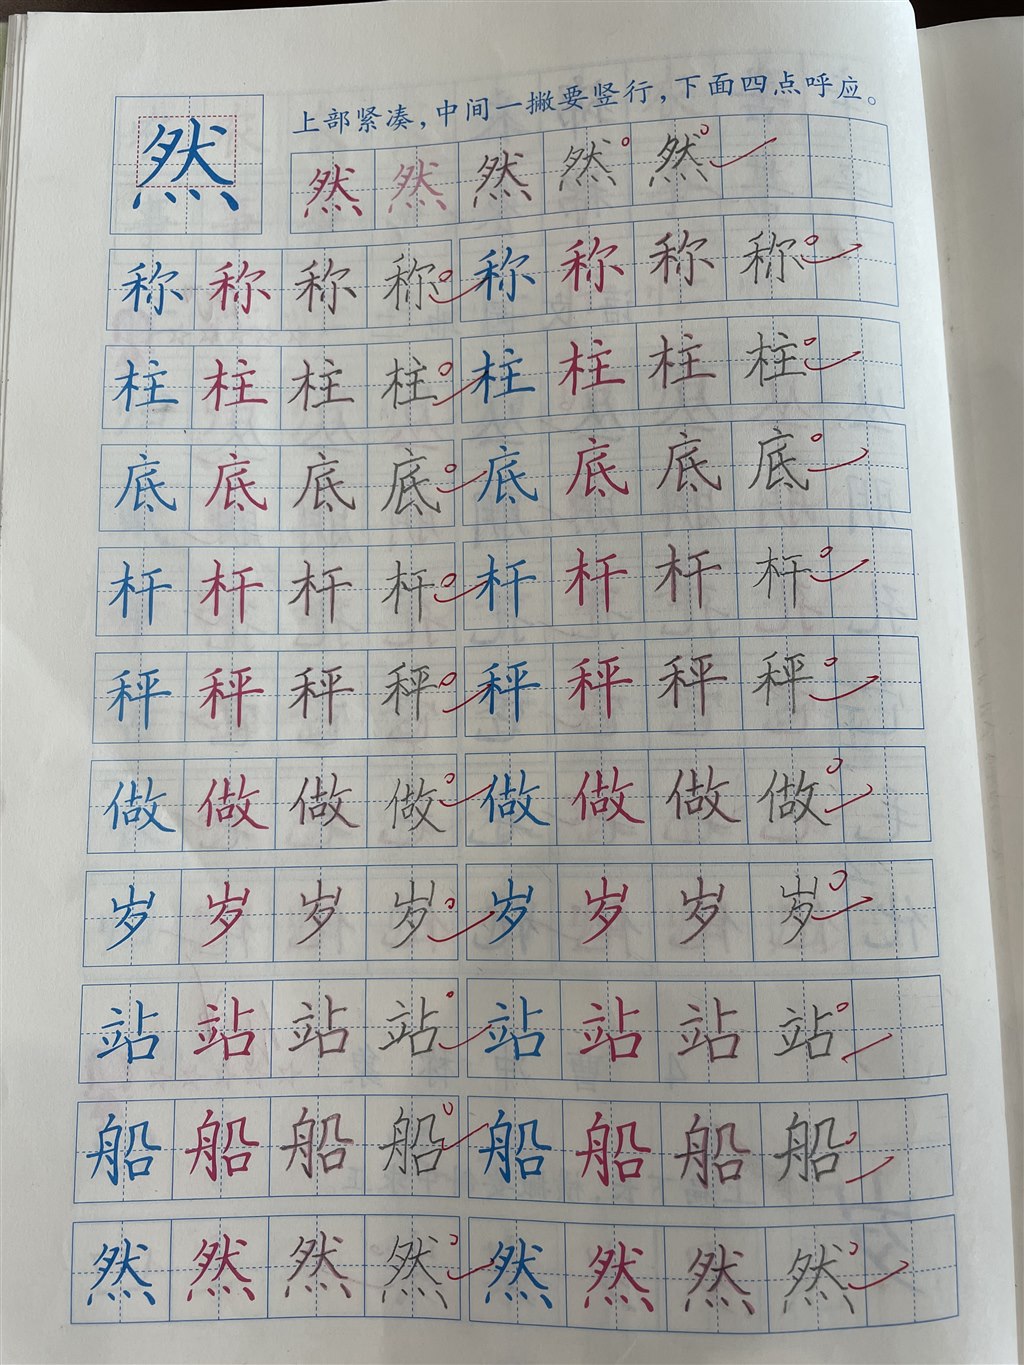 上部紧凑，中间一撇要竖行，下面四点呼应。
然 然 然 然 然 然
称 称 称 称 称 称 称 称
柱 柱 柱 柱 柱 柱 柱 柱
底 底 底 底 底 底 底 底
杆 杆 杆 杆 杆 杆 杆 杆
秤 秤 秤 秤 秤 秤 秤 秤
做 做 做 做 做 做 做 做
岁 岁 岁 岁 岁 岁 岁 岁
站 站 站 站 站 站 站 站
船 船 船 船 船 船 船 船
然 然 然 然 然 然 然 然